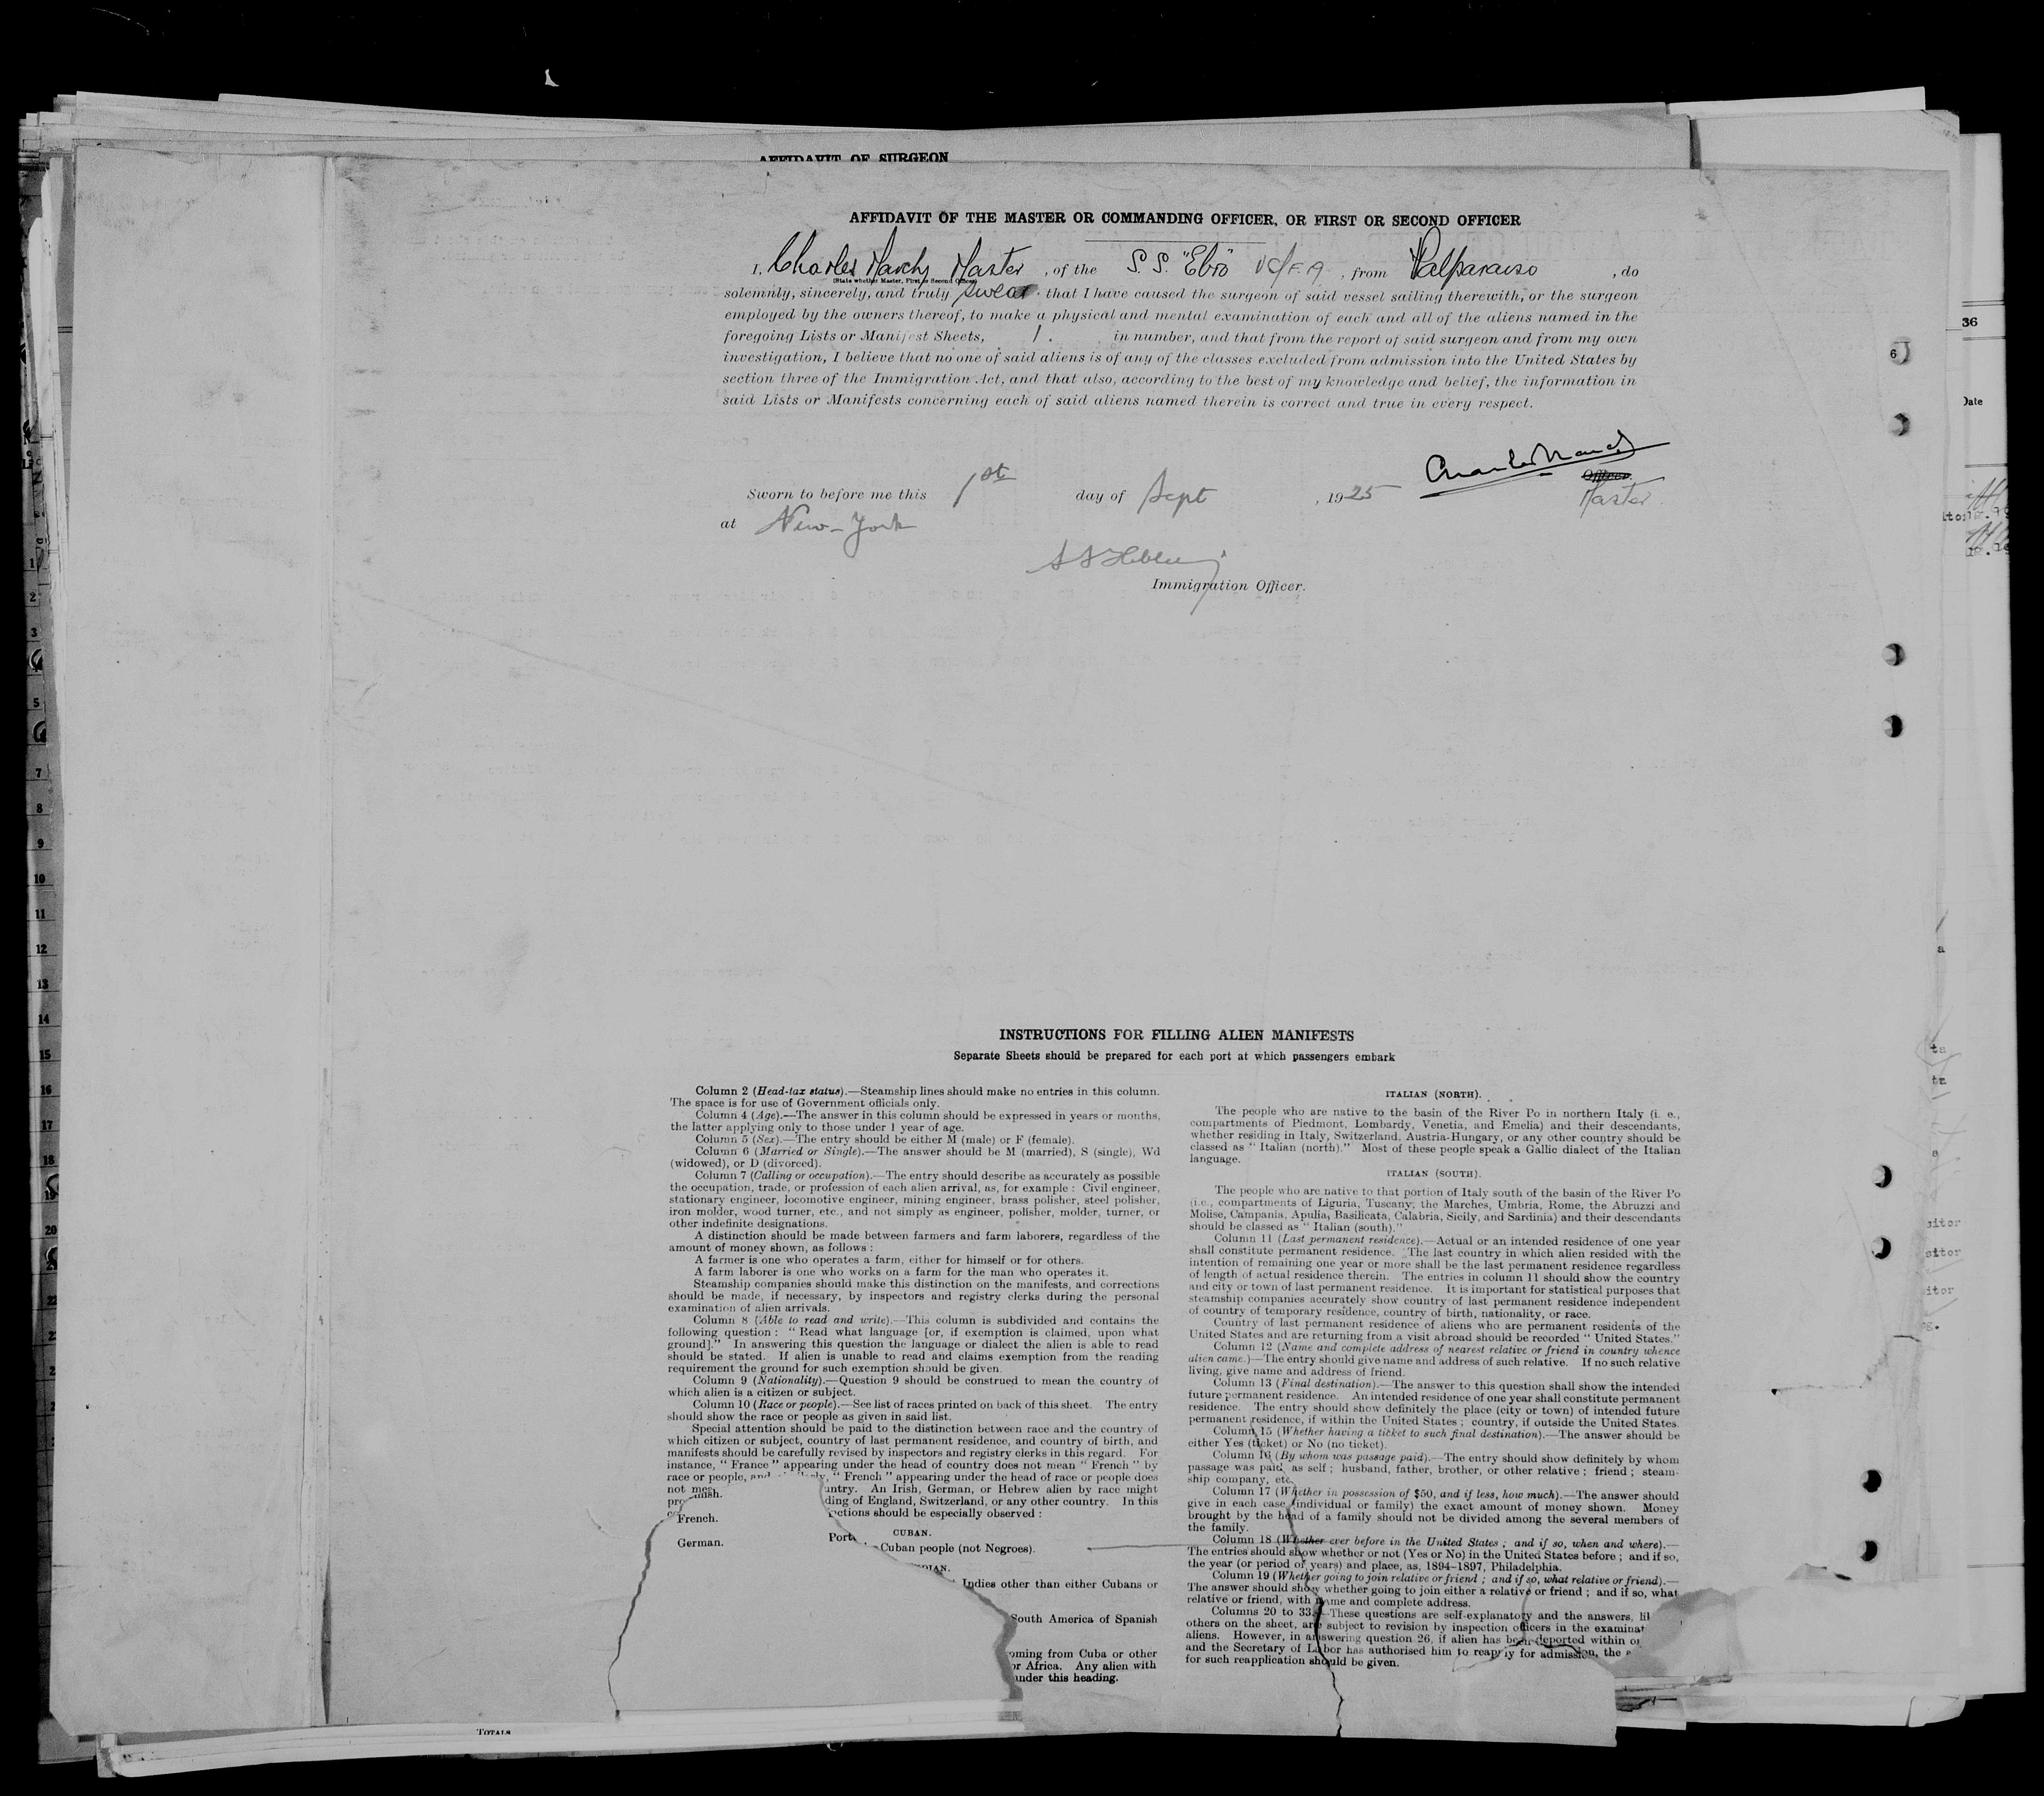 AFFIDAVIT OF SURGEON
AFFIDAVIT OF THE MASTER OR COMMANDING OFFICER, OR FIRST OR SECOND OFFICER
I, Charles March, Master, of the S.S. "Ebro", from Valparaiso, do
(State whether Master, First or Second Officer)
solemnly, sincerely, and truly swear that I have caused the surgeon of said vessel sailing therewith, or the surgeon
employed by the owners thereof, to make a physical and mental examination of each and all of the aliens named in the
foregoing Lists or Manifest Sheets, 1. in number, and that from the report of said surgeon and from my own
investigation, I believe that no one of said aliens is of any of the classes excluded from admission into the United States by
section three of the Immigration Act, and that also, according to the best of my knowledge and belief, the information in
said Lists or Manifests concerning each of said aliens named therein is correct and true in every respect.
Officer.
Sworn to before me this 1st day of Sept, 1925 Master
at New-York
Immigration Officer.
INSTRUCTIONS FOR FILLING ALIEN MANIFESTS
Separate Sheets should be prepared for each port at which passengers embark
Column 2 (Head-tax status).—Steamship lines should make no entries in this column.
The space is for use of Government officials only.
Column 4 (Age).—The answer in this column should be expressed in years or months,
the latter applying only to those under 1 year of age.
Column 5 (Sex).—The entry should be either M (male) or F (female).
Column 6 (Married or Single).—The answer should be M (married), S (single), Wd
(widowed), or D (divorced).
Column 7 (Calling or occupation).—The entry should describe as accurately as possible
the occupation, trade, or profession of each alien arrival, as, for example : Civil engineer,
stationary engineer, locomotive engineer, mining engineer, brass polisher, steel polisher,
iron molder, wood turner, etc., and not simply as engineer, polisher, molder, turner, or
other indefinite designations.
A distinction should be made between farmers and farm laborers, regardless of the
amount of money shown, as follows :
A farmer is one who operates a farm, either for himself or for others.
A farm laborer is one who works on a farm for the man who operates it.
Steamship companies should make this distinction on the manifests, and corrections
should be made, if necessary, by inspectors and registry clerks during the personal
examination of alien arrivals.
Column 8 (Able to read and write).—This column is subdivided and contains the
following question : " Read what language [or, if exemption is claimed, upon what
ground]." In answering this question the language or dialect the alien is able to read
should be stated. If alien is unable to read and claims exemption from the reading
requirement the ground for such exemption should be given.
Column 9 (Nationality).—Question 9 should be construed to mean the country of
which alien is a citizen or subject.
Column 10 (Race or people).—See list of races printed on back of this sheet. The entry
should show the race or people as given in said list.
Special attention should be paid to the distinction between race and the country of
which citizen or subject, country of last permanent residence, and country of birth, and
manifests should be carefully revised by inspectors and registry clerks in this regard. For
instance, " France " appearing under the head of country does not mean " French " by
race or people, and " French " appearing under the head of race or people does
not untry. An Irish, German, or Hebrew alien by race might
ding of England, Switzerland, or any other country. In this
ctions should be especially observed :
French.
German.
CUBAN.
Cuban people (not Negroes).
Indies other than either Cubans or
South America of Spanish
oming from Cuba or other
or Africa. Any alien with
under this heading.
ITALIAN (NORTH).
The people who are native to the basin of the River Po in northern Italy (i. e.,
compartments of Piedmont, Lombardy, Venetia, and Emelia) and their descendants,
whether residing in Italy, Switzerland, Austria-Hungary, or any other country should be
classed as " Italian (north)." Most of these people speak a Gallic dialect of the Italian
language.
ITALIAN (SOUTH).
The people who are native to that portion of Italy south of the basin of the River Po
(i.e., compartments of Liguria, Tuscany, the Marches, Umbria, Rome, the Abruzzi and
Molise, Campania, Apulia, Basilicata, Calabria, Sicily, and Sardinia) and their descendants
should be classed as " Italian (south)."
Column 11 (Last permanent residence).—Actual or an intended residence of one year
shall constitute permanent residence. The last country in which alien resided with the
intention of remaining one year or more shall be the last permanent residence regardless
of length of actual residence therein. The entries in column 11 should show the country
and city or town of last permanent residence. It is important for statistical purposes that
steamship companies accurately show country of last permanent residence independent
of country of temporary residence, country of birth, nationality, or race.
Country of last permanent residence of aliens who are permanent residents of the
United States and are returning from a visit abroad should be recorded " United States."
Column 12 (Name and complete address of nearest relative or friend in country whence
alien came.)—The entry should give name and address of such relative. If no such relative
living, give name and address of friend.
Column 13 (Final destination).—The answer to this question shall show the intended
future permanent residence. An intended residence of one year shall constitute permanent
residence. The entry should show definitely the place (city or town) of intended future
permanent residence, if within the United States ; country, if outside the United States.
Column 15 (Whether having a ticket to such final destination).—The answer should be
either Yes (ticket) or No (no ticket).
Column 16 (By whom was passage paid).—The entry should show definitely by whom
passage was paid, as self ; husband, father, brother, or other relative ; friend ; steam-
ship company, etc.
Column 17 (Whether in possession of $50, and if less, how much).—The answer should
give in each case (individual or family) the exact amount of money shown. Money
brought by the head of a family should not be divided among the several members of
the family.
Column 18 (Whether ever before in the United States ; and if so, when and where).—
The entries should show whether or not (Yes or No) in the United States before ; and if so,
the year (or period of years) and place, as, 1894-1897, Philadelphia.
Column 19 (Whether going to join relative or friend ; and if so, what relative or friend).—
The answer should show whether going to join either a relative or friend ; and if so, what
relative or friend, with name and complete address.
Columns 20 to 33.—These questions are self-explanatory and the answers, lik
others on the sheet, are subject to revision by inspection officers in the examinat
aliens. However, in answering question 26, if alien has been deported within on
and the Secretary of Labor has authorised him to reapply for admission, the
for such reapplication should be given.
TOTALS